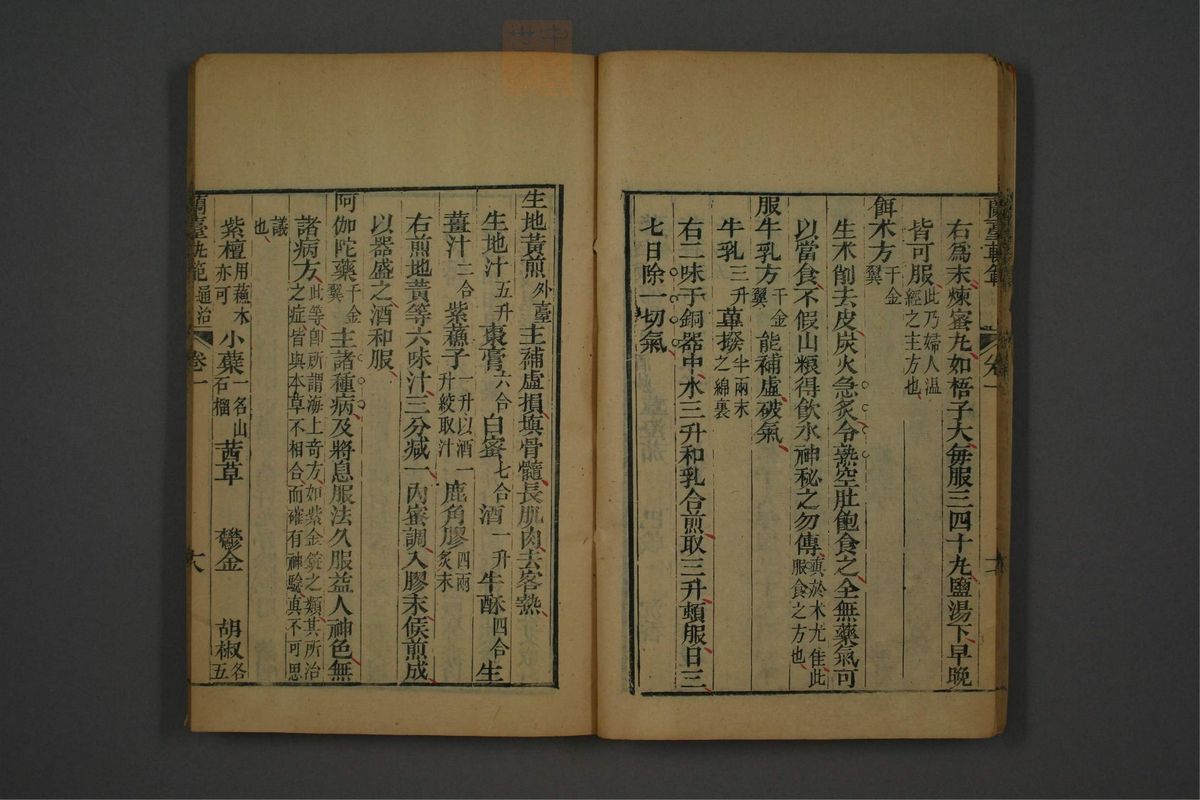 右為末煉蜜丸如梧子大每服三四十丸鹽湯下早晚
皆可服此乃婦人温經之主方也
餌朮方千金翼
生朮削去皮炭火急炙令熱空肚飽食之全無藥氣可
以當食不假山粮得飲水神秘之勿傳蒸於朮尤佳此服食之方也
服牛乳方千金翼能補虛破氣
牛乳三升蓽撥半兩末之綿裹
右二味于銅器中水三升和乳合煎取三升頓服日三
七日除一切氣
蘭臺軌範
卷一
生地黃煎外臺主補虛損填骨髓長肌肉去客熱
生地汁五升棗膏六合白蜜七合酒一升牛酥四合生
薑汁二合紫蘇子一升以酒一升絞取汁鹿角膠四兩炙末
右煎地黃等六味汁三分減一內蜜調入膠末候煎成
以器盛之酒和服
阿伽陀藥千金翼主諸種病及將息服法久服益人神色無
諸病方此等即所謂海上奇方如紫金錠之類其所治之症皆與本草不相合而確有神驗真不可思
議也
紫檀用蘸水亦可小蘗一名山石榴茜草鬱金胡椒各五
蘭臺軌範
通治
卷一